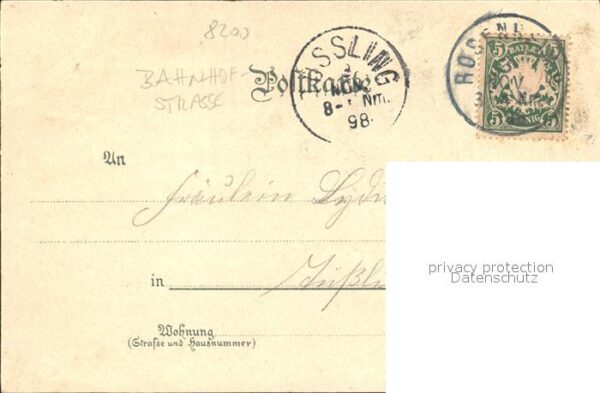 8200
BAHNHOF-
STRASSE
Postkarte
SSLING
NOV.
8- Nm.
98.
ROSENH
5 BAYERN 5
5 PFENNIG 5
An
Fräulein Lydi
in
Wohnung
(Straße und Hausnummer)
privacy protection
Datenschutz